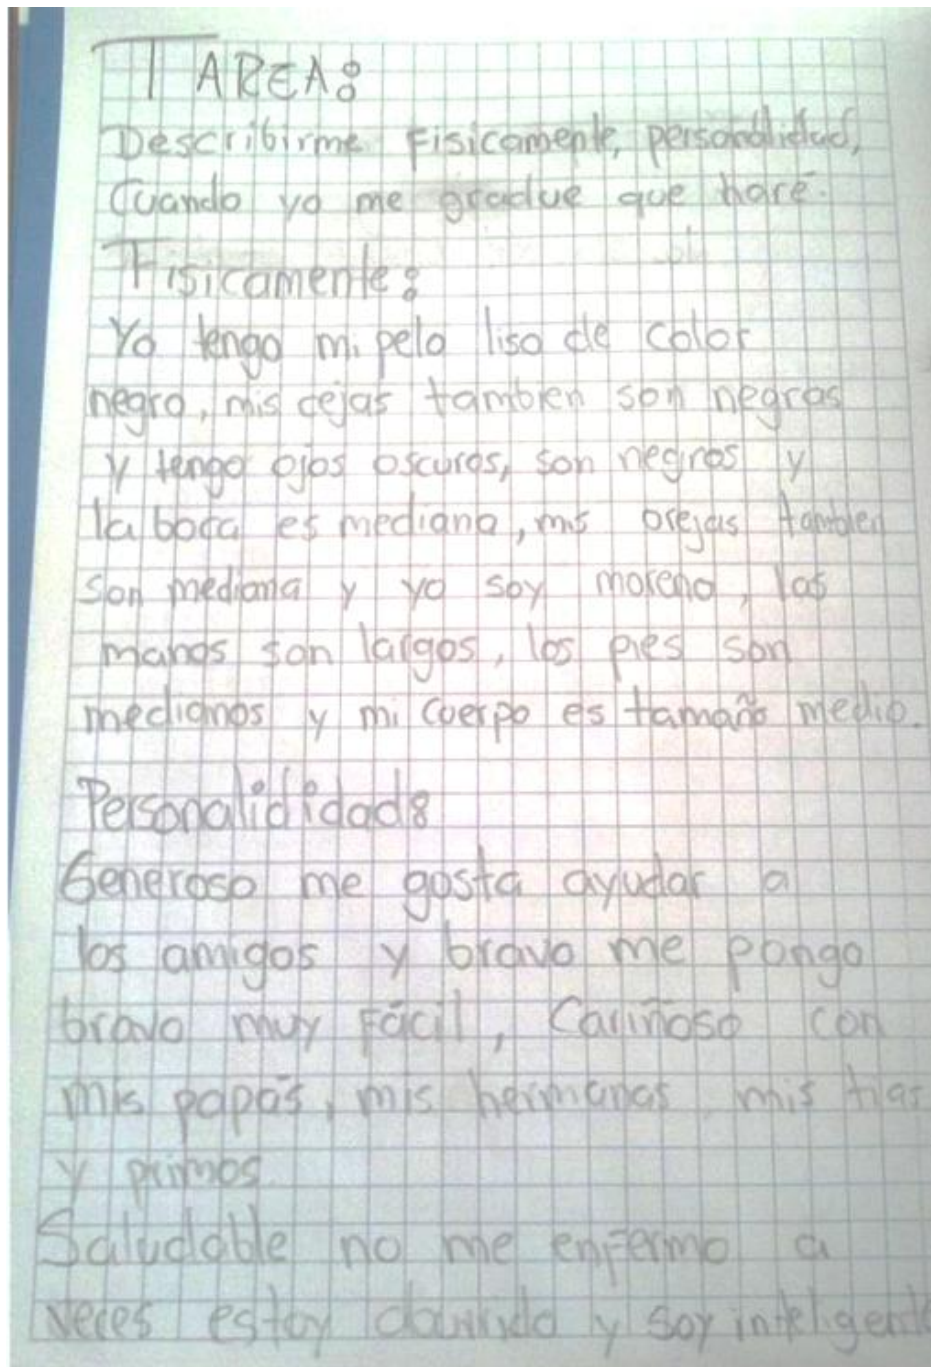 TAREA:
Describirme Fisicamente, personalidad,
Cuando yo me gradue que haré.
Fisicamente:
Yo tengo mi pelo liso de color
negro, mis cejas tambien son negras
y tengo ojos oscuros, son negros y
la boca es mediana, mis orejas tambien
son mediana y yo soy moreno, las
manos son largos, los pies son
medianos y mi cuerpo es tamaño medio.
Personalididad:
Generoso me gosta ayudar a
los amigos y bravo me pongo
bravo muy Fácil, Cariñoso con
mis papás, mis hermanas mis tias
y primos.
Saludable no me enfermo a
veces estoy y soy inteligente